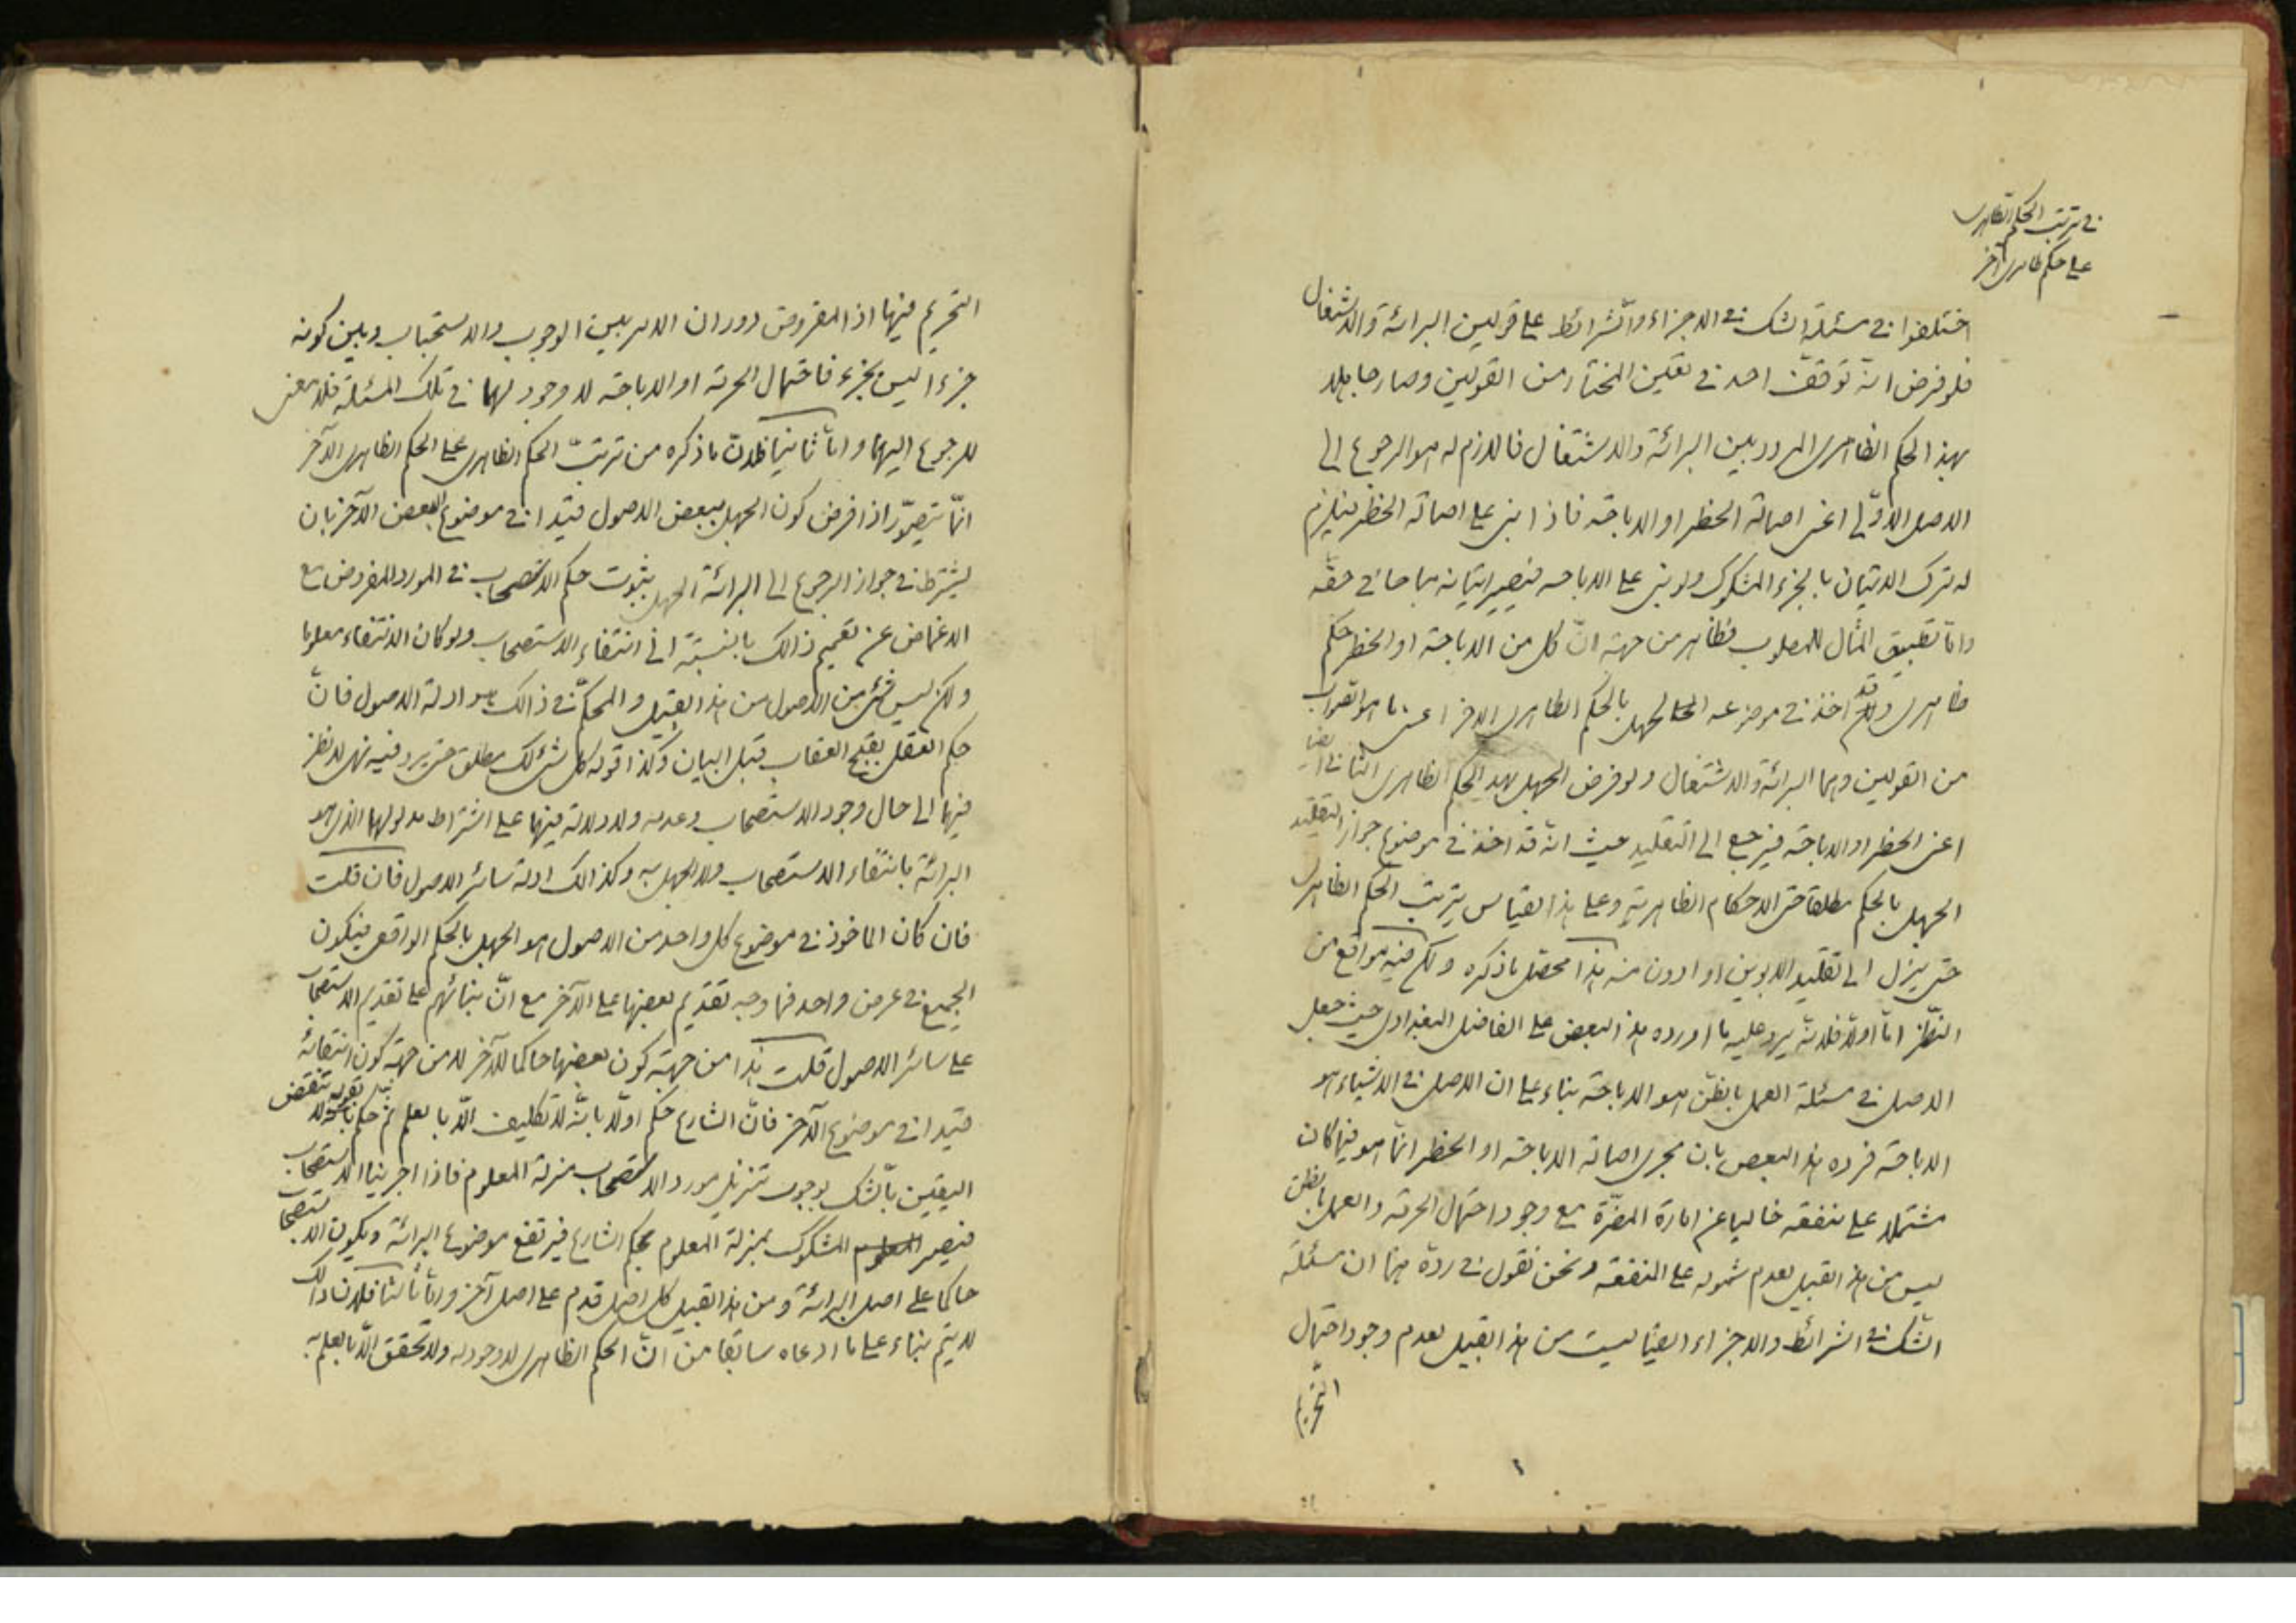 في ترتب الحكم الظاهرى
على حكم ظاهرى آخر
اختلفوا في مسئلة الشك في الاجزاء والشرائط على قولين البرائة والاشتغال
فلو فرض انه توقف احد في تعيين المختار من القولين وصار جاهلا
بهذا الحكم الظاهرى المردد بين البرائة والاشتغال فاللازم له هو الرجوع الى
الاصل الاولى اعنى اصالة الحظر او الاباحة فاذا بنى على اصالة الحظر فيلزم
له ترك الاتيان بالجزء المشكوك ولو بنى على الاباحه فيصير اتيانه مباحا في حقه
واما تطبيق المثال للمطلوب فظاهر من جهة ان كل من الاباحة او الحظر حكم
ظاهرى وقد اخذ في موضوعه الجهل بالحكم الظاهرى الاخر اعنى ما هو الصواب
من القولين وهما البرائة والاشتغال ولو فرض الجهل بهذا الحكم الظاهرى الثانى ايضا
اعنى الحظر او الاباحة فيرجع الى التقليد حيث انه قد اخذ في موضوع جواز التقليد
الجهل بالحكم مطلقا حتى الاحكام الظاهرية وعلى هذا القياس يترتب الحكم الظاهرى
حتى ينزل الى تقليد الابوين او ادون منه هذا محصل ما ذكره ولكن فيه مواقع من
النظر اما اولا فلانه يرد عليه ما اورده هذا البعض على الفاضل البغدادى حيث جعل
الاصل في مسئلة العمل بالظن هو الاباحة بناء على ان الاصل في الاشياء هو
الاباحة فرده هذا البعض بان مجرى اصالة الاباحة او الحظر انما هو فيما كان
مشتملا على منفعة خاليا عن امارة المضرة مع وجود احتمال الحرمة والعمل بالظن
ليس من هذا القبيل لعدم شموله على المنفعة ونحن نقول في رده هنا ان مسئلة
الشك في الشرائط والاجزاء ايضا ليست من هذا القبيل لعدم وجود احتمال
التحريم
التحريم فيها اذ المفروض دوران الامر بين الوجوب والاستحباب وبين كونه
جزءا اليس بجزء فاحتمال الحرمة او الاباحة لا وجود لهما في تلك المسئلة فلا معنى
للرجوع اليهما واما ثانيا فلان ما ذكره من ترتب الحكم الظاهرى على الحكم الظاهرى الآخر
انما يتصور اذا فرض كون الجهل ببعض الاصول قيدا في موضوع البعض الآخر بان
يشترط في جواز الرجوع الى البرائة الجهل بثبوت حكم الاستصحاب في المورد المفروض مع
الاغماض عن تعميم ذالك بالنسبة الى انتفاء الاستصحاب ولو كان الانتفاء معلوما
ولكن ليس شئ من الاصول من هذا القبيل والمحكم في ذالك هو ادلة الاصول فان
حكم العقل بقبح العقاب قبل البيان وكذا قوله كل شئ لك مطلق حتى يرد فيه نهى لا نظر
فيها الى حال وجود الاستصحاب وعدمه ولا دلالة فيها على اشتراط مدلولها الذى هو
البرائة بانتفاء الاستصحاب ولا الجهل به وكذالك ادلة سائر الاصول فان قلت
فان كان الماخوذ في موضوع كل واحد من الاصول هو الجهل بالحكم الواقعى فيكون
الجميع في عرض واحد فما وجه تقديم بعضها على الآخر مع ان بنائهم على تقديم الاستصحاب
على سائر الاصول قلت هذا من جهة كون بعضها حاكما للآخر لا من جهة كون انتفائه
قيدا في موضوع الآخر فان الشارع حكم اولا بانه لا تكليف الا بما يعلم ثم حكم بقوله لا تنقض
اليقين بالشك بوجوب تنزيل مورد الاستصحاب منزلة المعلوم فاذا اجرينا الاستصحاب
فيصير المشكوك بمنزلة المعلوم بحكم الشارع فيرتفع موضوع البرائة ويكون الاستصحاب
حاكما على اصل البرائة ومن هذا القبيل كل اصل قدم على اصل آخر واما ثالثا فلان ذالك
لا يتم بناء على ما ادعاه سابقا من ان الحكم الظاهرى لا وجود له ولا تحقق الا بالعلم به